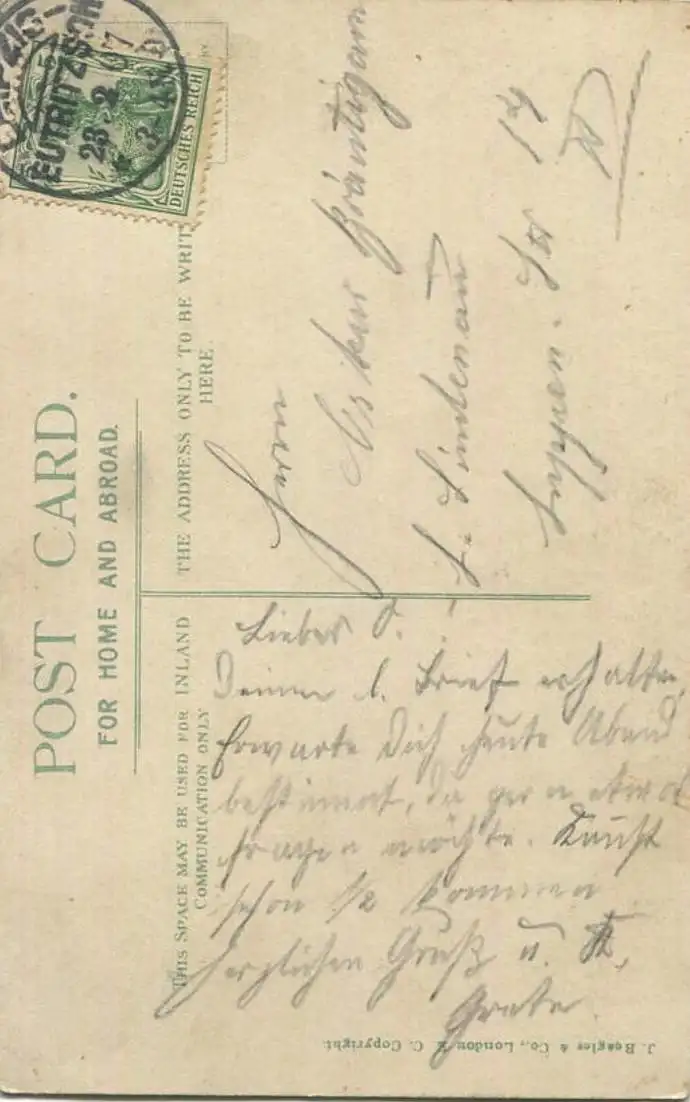 POST CARD.
FOR HOME AND ABROAD.
THIS SPACE MAY BE USED FOR INLAND
COMMUNICATION ONLY
THE ADDRESS ONLY TO BE WRIT
HERE.
DEUTSCHES REICH
EUTRITZSCH
23 2
Herrn
Oskar Bräutigam
L. Lindenau
Luppen-Str 19
Lieber O.!
Deinen l. Brief erhalten,
Erwarte Dich heute Abend
bestimmt, da gern etwas
fragen möchte. Kannst
schon 1/2 kommen
Herzlichen Gruß u. K.
Grete.
J. Beagles & Co., London E. C. Copyright.